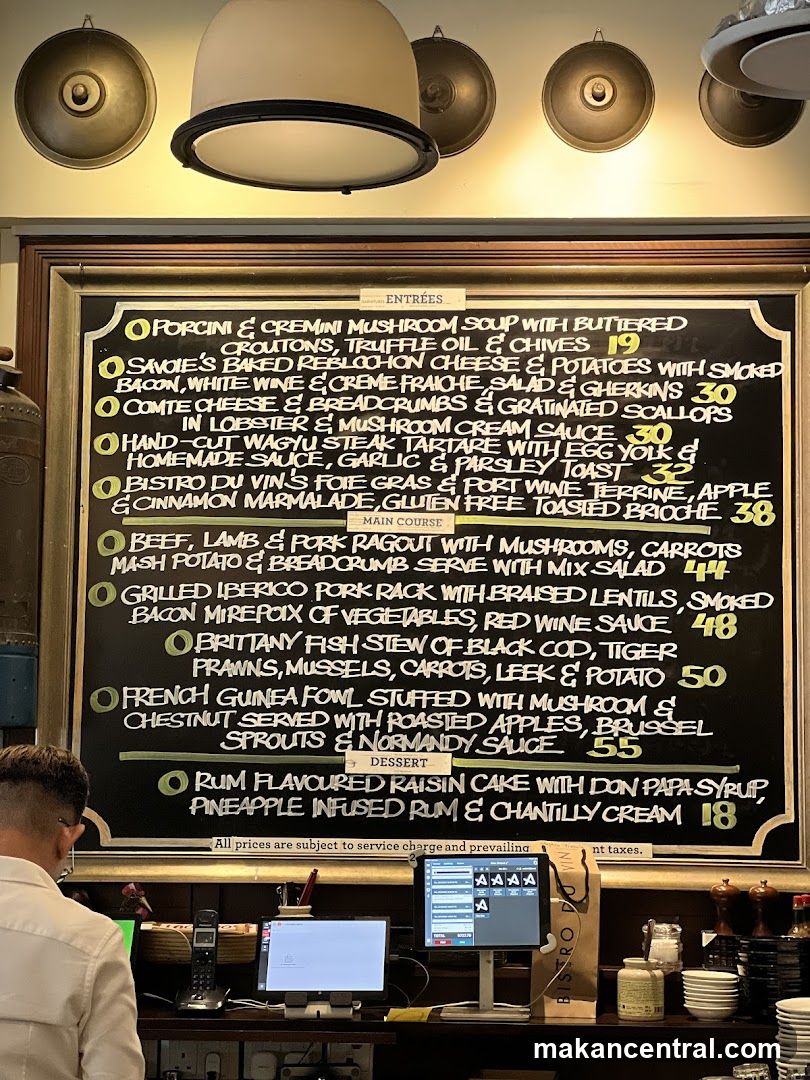 ENTRÉES
PORCINI & CREMINI MUSHROOM SOUP WITH BUTTERED
CROUTONS, TRUFFLE OIL & CHIVES 19
SAVOIE'S BAKED REBLOCHON CHEESE & POTATOES WITH SMOKED
BACON, WHITE WINE & CREME FRAICHE, SALAD & GHERKINS 30
COMTE CHEESE & BREADCRUMBS & GRATINATED SCALLOPS
IN LOBSTER & MUSHROOM CREAM SAUCE 30
HAND-CUT WAGYU STEAK TARTARE WITH EGG YOLK &
HOMEMADE SAUCE, GARLIC & PARSLEY TOAST 32
BISTRO DU VIN'S FOIE GRAS & PORT WINE TERRINE, APPLE
& CINNAMON MARMALADE, GLUTEN FREE TOASTED BRIOCHE 38
MAIN COURSE
BEEF, LAMB & PORK RAGOUT WITH MUSHROOMS, CARROTS
MASH POTATO & BREADCRUMB SERVE WITH MIX SALAD 44
GRILLED IBERICO PORK RACK WITH BRAISED LENTILS, SMOKED
BACON MIREPOIX OF VEGETABLES, RED WINE SAUCE 48
BRITTANY FISH STEW OF BLACK COD, TIGER
PRAWNS, MUSSELS, CARROTS, LEEK & POTATO 50
FRENCH GUINEA FOWL STUFFED WITH MUSHROOM &
CHESTNUT SERVED WITH ROASTED APPLES, BRUSSEL
SPROUTS & NORMANDY SAUCE 55
DESSERT
RUM FLAVOURED RAISIN CAKE WITH DON PAPA SYRUP,
PINEAPPLE INFUSED RUM & CHANTILLY CREAM 18
All prices are subject to service charge and prevailing nt taxes.
2
TOTAL
BISTRO DU VIN
makancentral.com